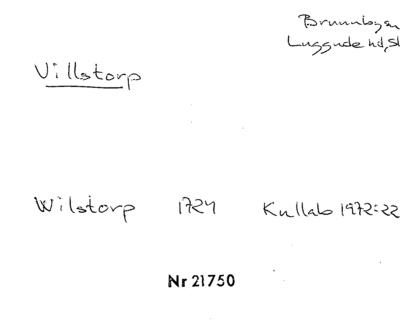 Brunnbysn
Luggude hd, Sk
Villstorp
Wilstorp 1724 Kullab 1972:22
Nr 21750